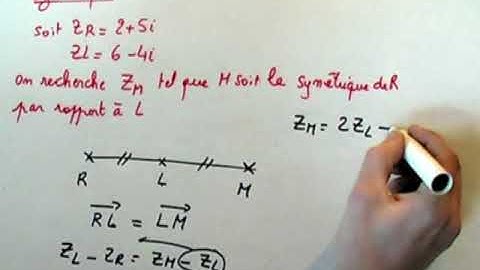 soit Z_R = 2 + 5i
Z_L = 6 - 4i
on recherche Z_M tel que M soit la symétrique de R
par rapport à L
R L M
\overrightarrow{RL} = \overrightarrow{LM}
Z_L - Z_R = Z_M - Z_L
Z_M = 2Z_L -